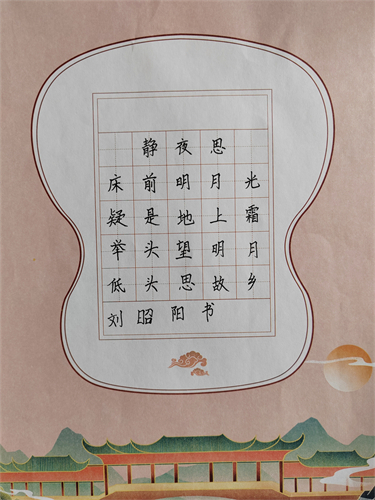 静夜思
床前明月光
疑是地上霜
举头望明月
低头思故乡
刘昭阳书